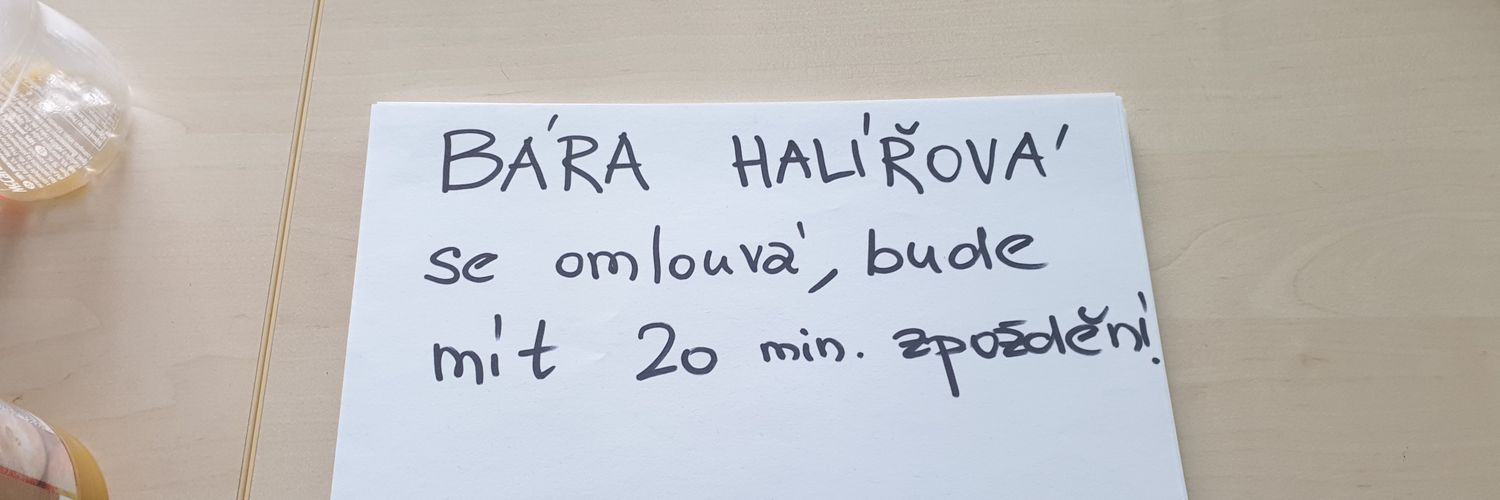 BÁRA HALÍŘOVÁ
se omlouvá, bude
mít 20 min. zpoždění.